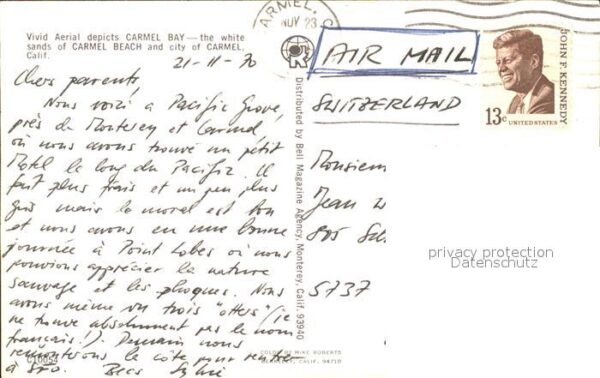 Vivid Aerial depicts CARMEL BAY — the white
sands of CARMEL BEACH and city of CARMEL,
Calif.
21-11-70
Chers parents,
Nous voici à Pacific Grove,
près de Monterey et Carmel
où nous avons trouvé un petit
Motel le long du Pacific. Il
fait plus frais et un peu plus
gris mais le moral est bon
et nous avons eu une bonne
journée à Point Lobos où nous
pouvions apprécier la nature
sauvage et les phoques. Nous
avons même vu trois "otters" (je
ne trouve absolument pas le nom
français!). Demain nous
remonterons la côte pour rentrer
à SFO. Becs Sylvie
C10054
Distributed by Bell Magazine Agency, Monterey, Calif. 93940
COLOR BY MIKE ROBERTS
BERKELEY, CALIF. 94710
CARMEL, C
NOV 23
AIR MAIL
SWITZERLAND
JOHN F. KENNEDY
13c
UNITED STATES
Monsieur
Jean
805
5737
privacy protection
Datenschutz